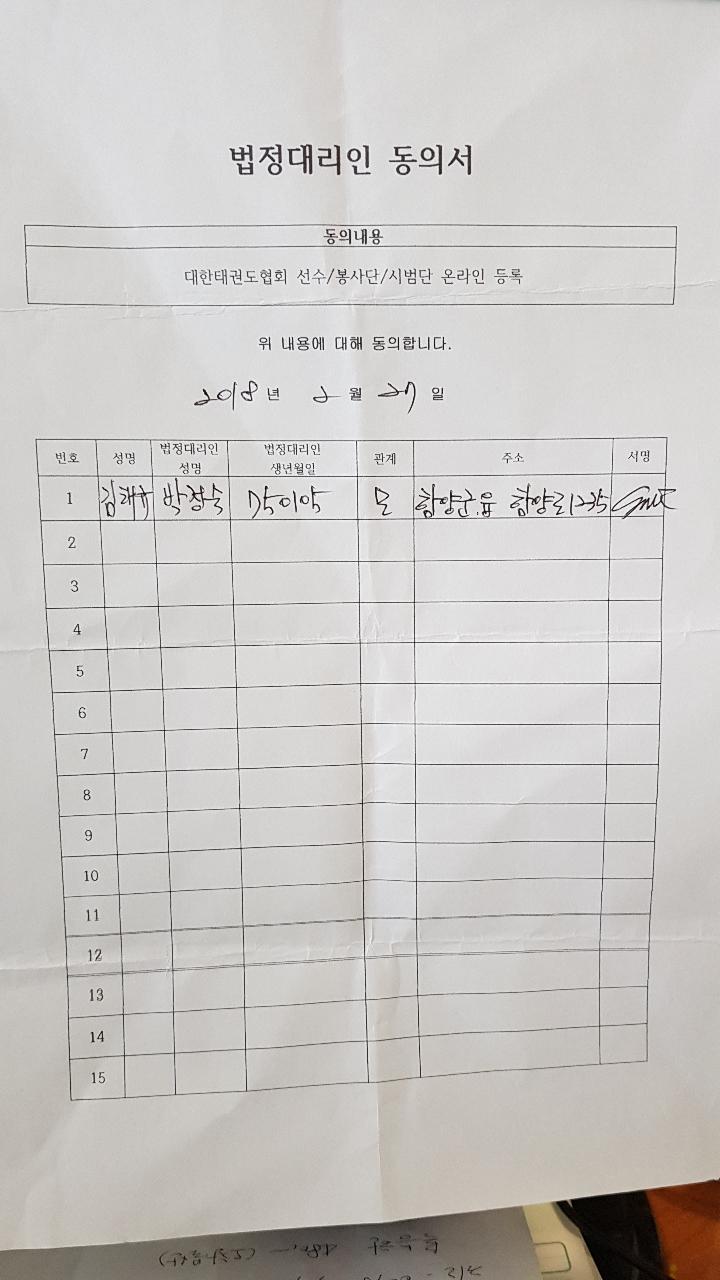 법정대리인 동의서
동의내용
대한태권도협회 선수/봉사단/시범단 온라인 등록
위 내용에 대해 동의합니다.
2018 년 2 월 27 일
번호 성명 법정대리인 성명 법정대리인 생년월일 관계 주소 서명
1 박정숙 모 함양군.읍 함양로1235
2
3
4
5
6
7
8
9
10
11
12
13
14
15